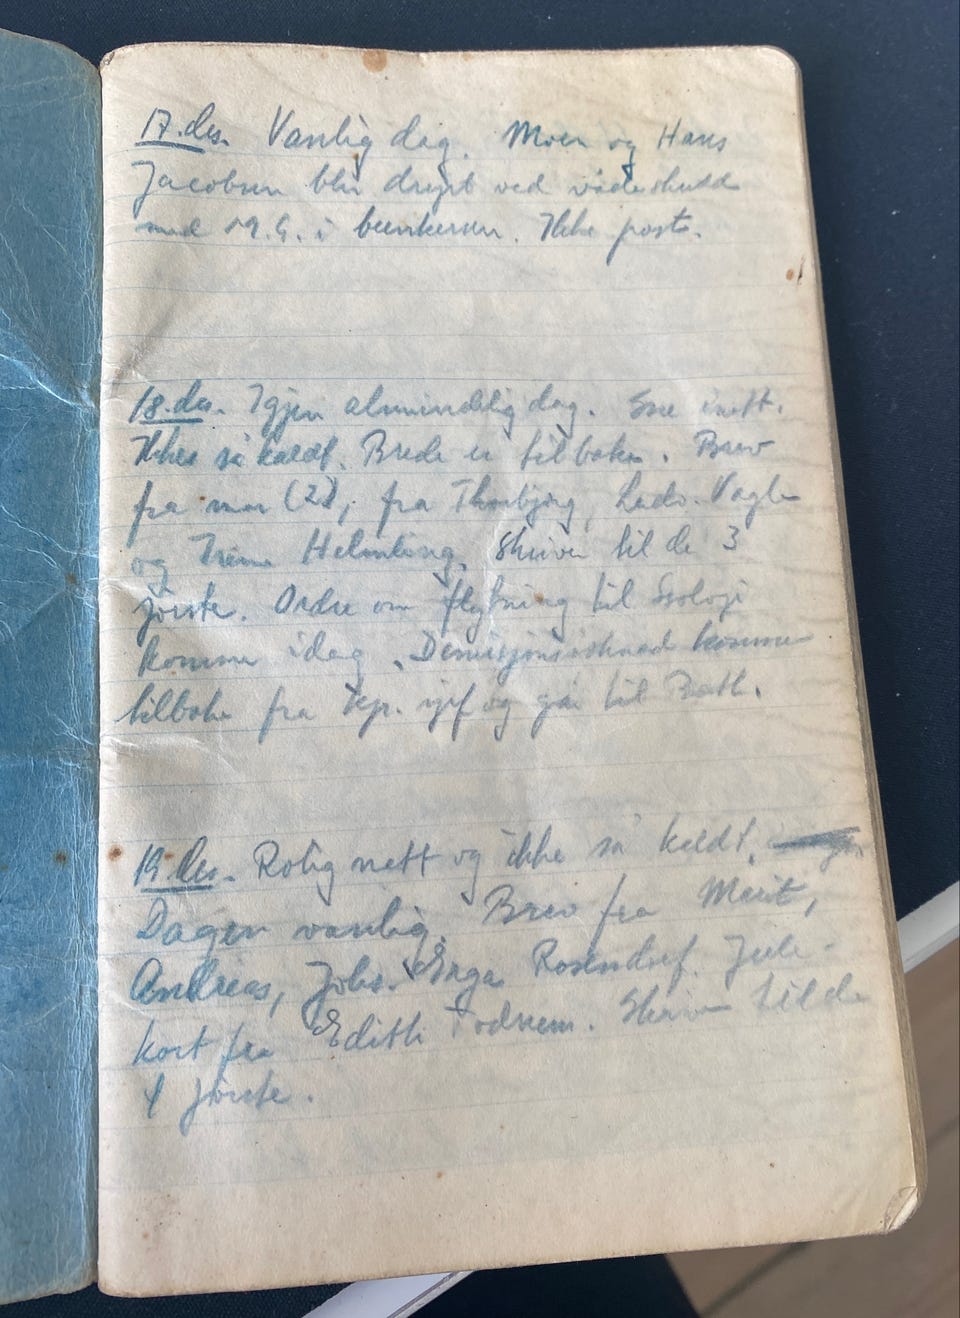 17. des. Vanlig dag. Moen og Hans
Jacobsen blir drept ved vådeskudd
med M.G. i bunkersen. Ikke post.
18. des. Igjen almindelig dag. Sne i natt.
Ikke så kaldt. Brede er tilbake. Brev
fra mor (2), fra Thorbjørg, Ludv. Vagle
og Helmling. Skriver til de 3
første. Ordre om flytning til
kommer idag. kommer
tilbake fra og går til
19. des. Rolig natt og ikke så kaldt.
Dagen vanlig. Brev fra Marit,
Andreas, Johs. Inga Rosendorf. Jule-
kort fra Edith Todnem. Skriver til de
4 første.